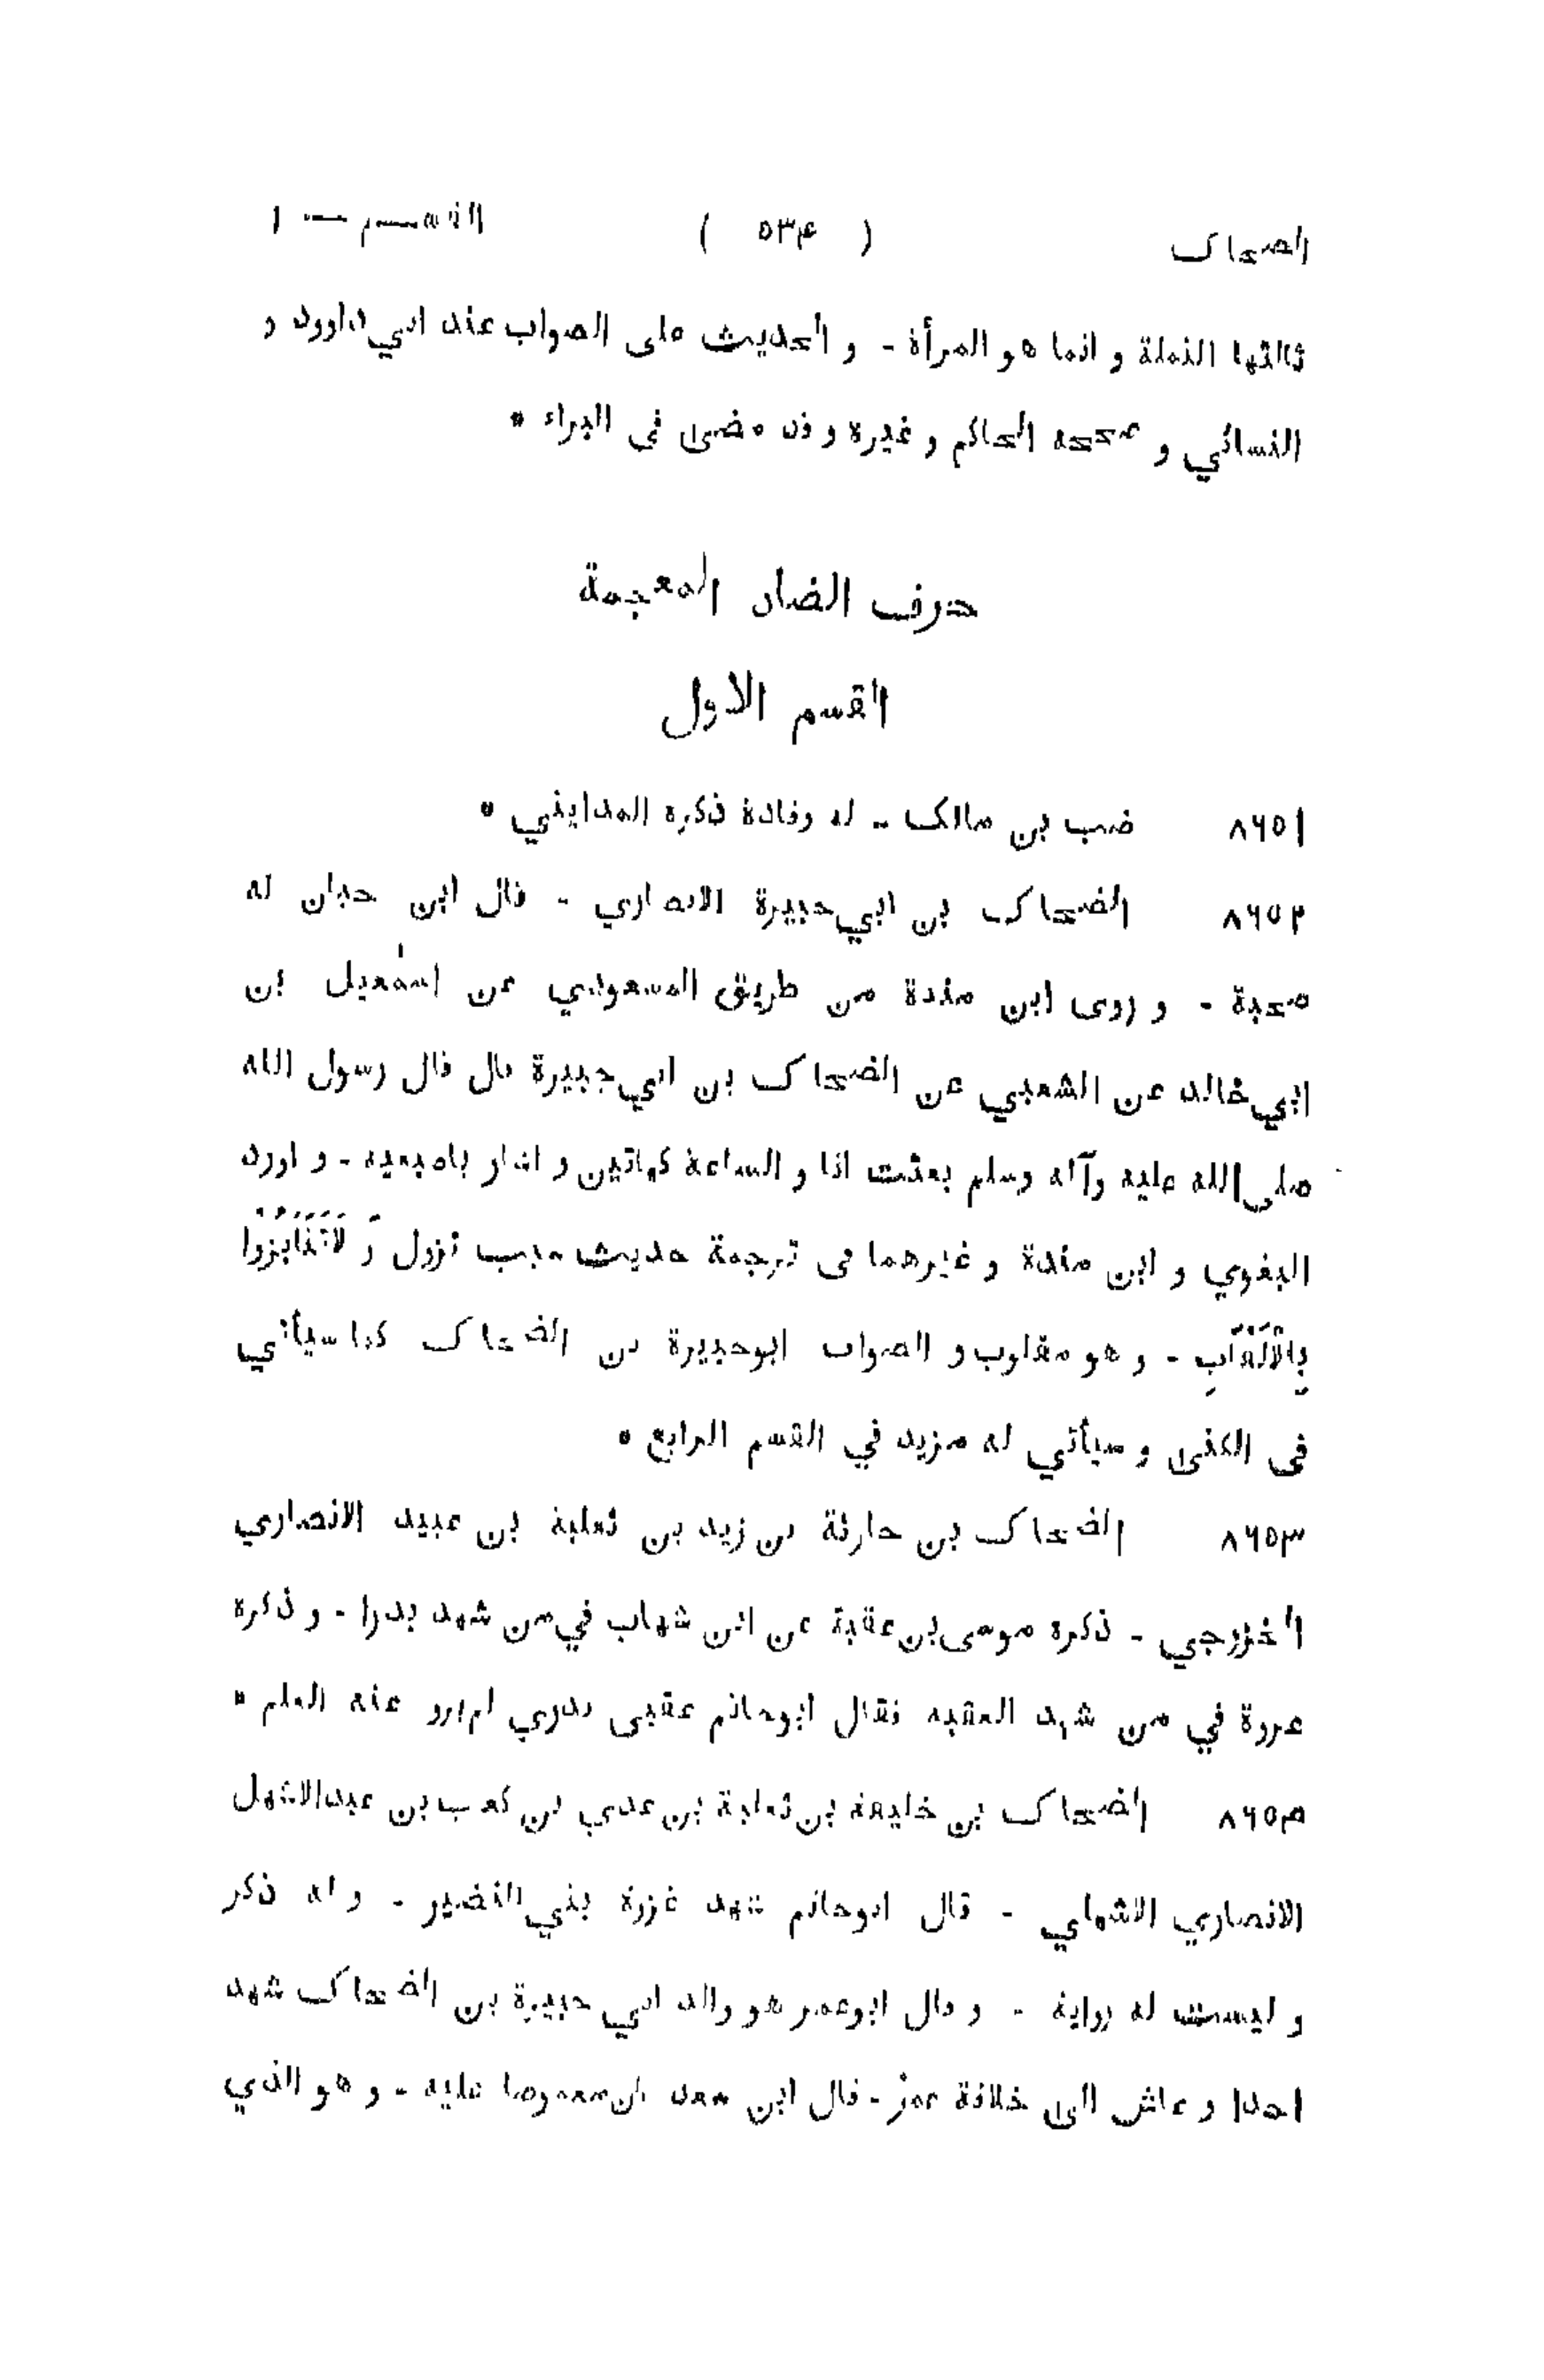 الضحاک ( ۵۳۴ ) القسم — ۱
قالتها النملة و انما هو المرأة - و الحديث على الصواب عند ابي داوود و
النسائي و صححه الحاكم و غيره و قد مضى فى البراء *
حرف الضاد المعجمة
القسم الاول
۸۶۵۱ ضب بن مالک - له وفادة ذكره المدايني *
۸۶۵۲ الضحاک بن ابي جبيرة الانصاري - قال ابن حبان له
صحبة - و روى ابن مندة من طريق المسعودي عن اسمٰعيل بن
ابي خالد عن الشعبي عن الضحاک بن ابي جبيرة قال قال رسول الله
صلى الله عليه وآله وسلم بعثت انا و الساعة كهاتين و اشار باصبعيه - و اورد
البغوي و ابن مندة و غيرهما فى ترجمة حديث سبب نزول وَ لَاتَنَابَزُوْا
بِالْاَلْقَابِ - و هو مقلوب و الصواب ابوجبيرة بن الضحاک كما سيأتي
فى الكنى و سيأتي له مزيد في القسم الرابع *
۸۶۵۳ الضحاک بن حارثة بن زيد بن ثعلبة بن عبيد الانصاري
الخزرجي - ذكره موسى بن عقبة عن ابن شهاب في من شهد بدرا - و ذكره
عروة في من شهد العقبة فقال ابوحاتم عقبى بدري لم يرو عنه العلم *
۸۶۵۴ الضحاک بن خليفة بن ثعلبة بن عدي بن كعب بن عبدالاشهل
الانصاري الاشهلي - قال ابوحاتم شهد غزوة بني النضير - و له ذكر
و ليست له رواية - و قال ابوعمر هو والد ابي جبيرة بن الضحاک شهد
احدا و عاش الى خلافة عمر - قال ابن سعد كان مغموصا عليه - و هو الذي